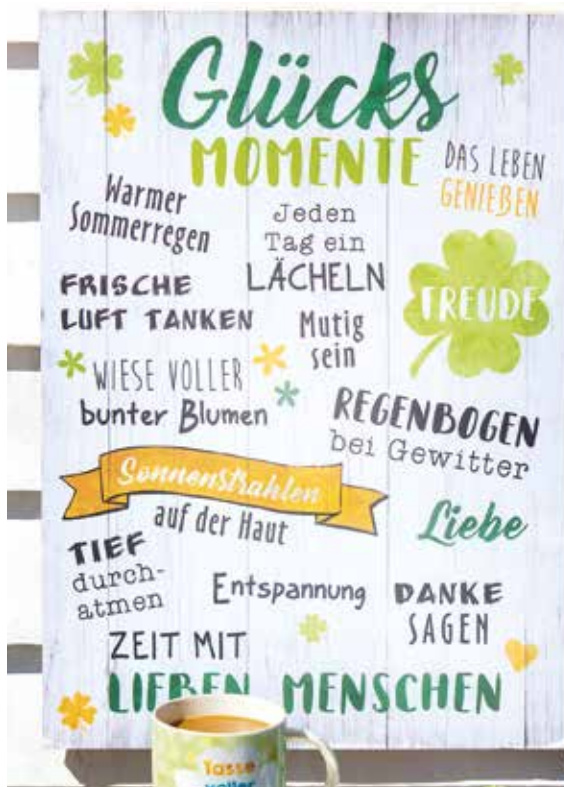 Glücks
MOMENTE
DAS LEBEN
GENIEßEN
Warmer
Sommerregen
Jeden
Tag ein
LÄCHELN
FREUDE
FRISCHE
LUFT TANKEN
Mutig
sein
WIESE VOLLER
bunter Blumen
REGENBOGEN
bei Gewitter
Sonnenstrahlen
auf der Haut
Liebe
TIEF
durch-
atmen
Entspannung
DANKE
SAGEN
ZEIT MIT
LIEBEN MENSCHEN
Tasse
voller